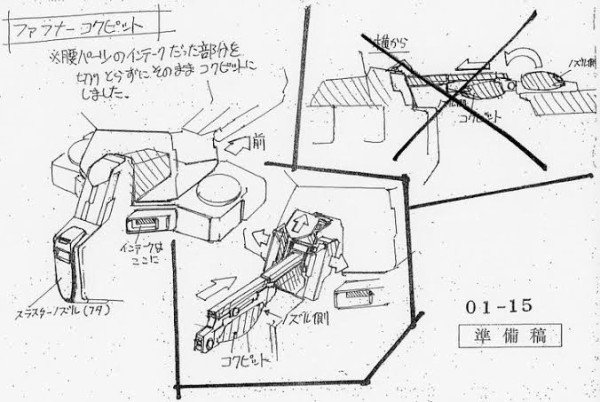 ファフナーコクピット
※腰パーツのインテークだった部分を
切りとらずにそのままコクピットに
しました。
横から
ノズル側
コクピット
前
インテークは
ここに
スラスターノズル(フタ)
ノズル側
コクピット
01-15
準備稿